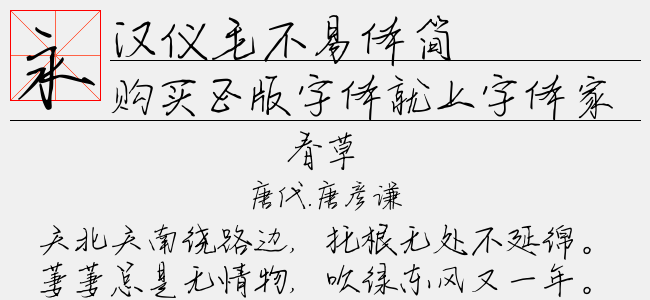 永
汉仪毛不易体简
购买正版字体就上字体家
春草
唐代.唐彦谦
天北天南绕路边，托根无处不延绵。
萋萋总是无情物，吹绿东风又一年。